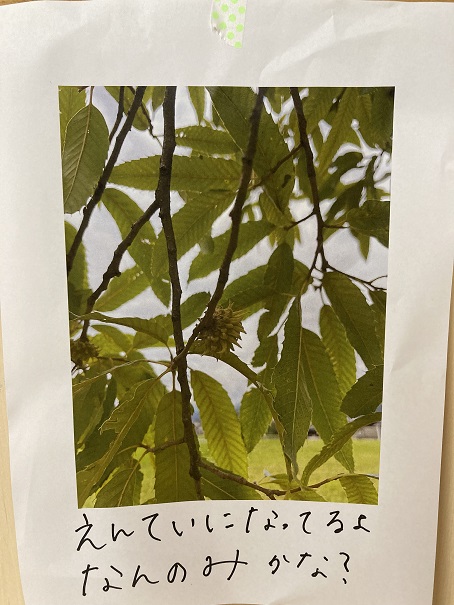 えんていになってるよ
なんのみかな?